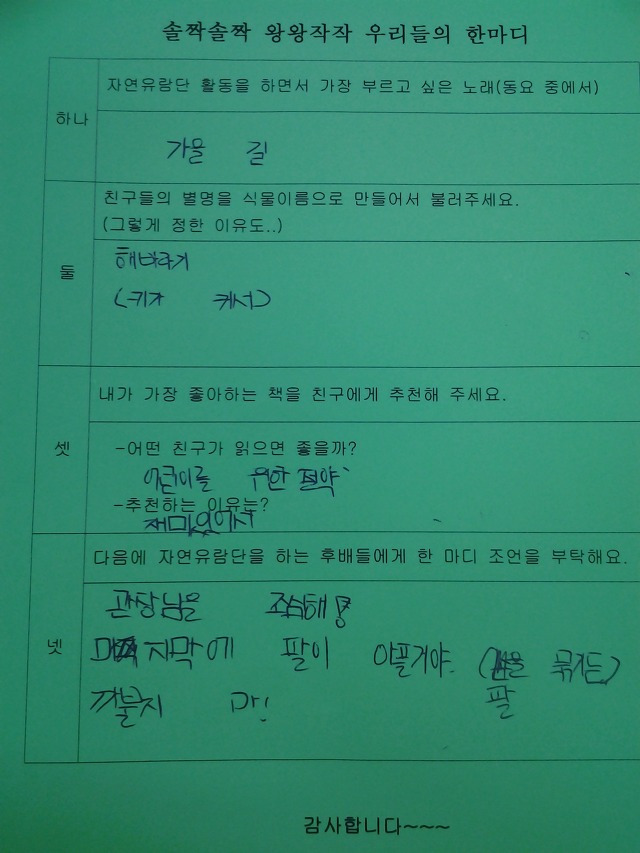 솔짝솔짝 왕왕작작 우리들의 한마디
하나
자연유람단 활동을 하면서 가장 부르고 싶은 노래(동요 중에서)
가을 길
둘
친구들의 별명을 식물이름으로 만들어서 불러주세요.
(그렇게 정한 이유도..)
해바라기
(키가 커서)
셋
내가 가장 좋아하는 책을 친구에게 추천해 주세요.
-어떤 친구가 읽으면 좋을까?
위한 절약
-추천하는 이유는?
재미있어서
넷
다음에 자연유람단을 하는 후배들에게 한 마디 조언을 부탁해요.
관장님을 조심해!
마지막에 팔이 아플거야. (팔을 묶거든)
까불지 마!
감사합니다~~~